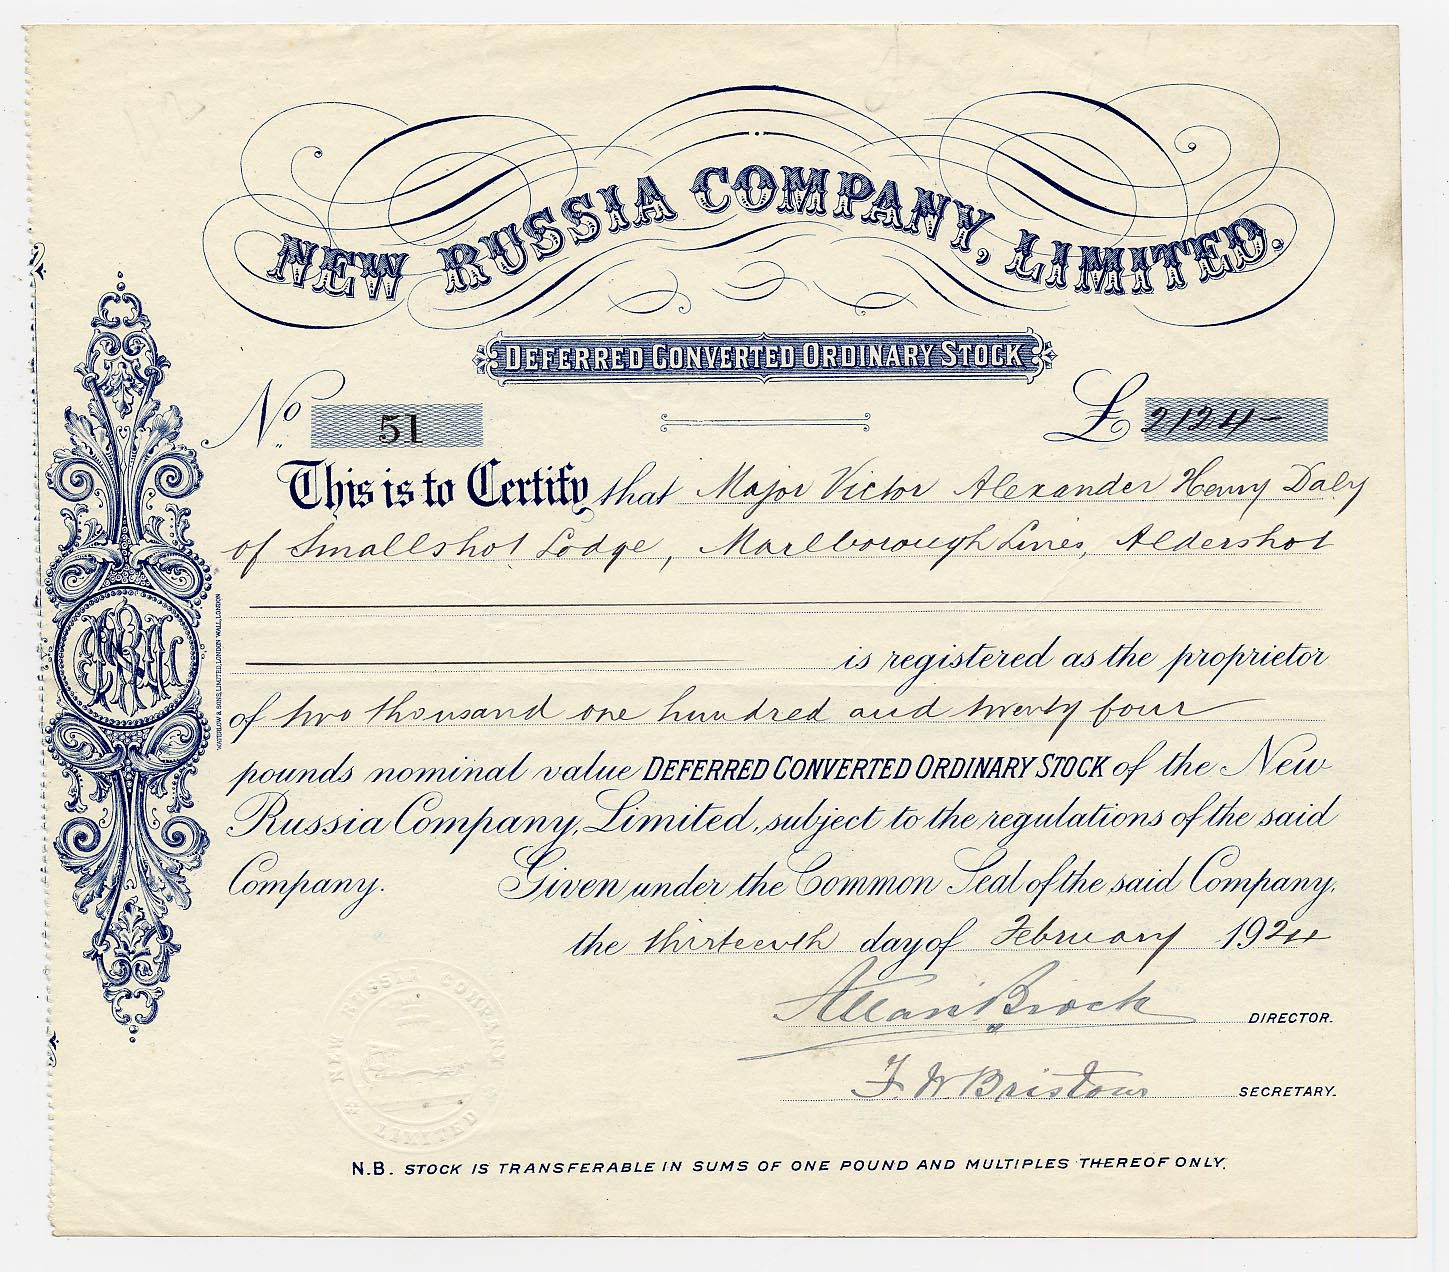 NEW RUSSIA COMPANY, LIMITED.
DEFERRED CONVERTED ORDINARY STOCK
No. 51 £ 2124-
This is to Certify that Major Victor Alexander Henry Daly
of Smallshot Lodge, Marlborough Lines, Aldershot
is registered as the proprietor
of two thousand one hundred and twenty four
pounds nominal value DEFERRED CONVERTED ORDINARY STOCK of the New
Russia Company, Limited, subject to the regulations of the said
Company. Given under the Common Seal of the said Company,
the thirteenth day of February 1924
Allan Brock DIRECTOR.
F. W. Bristow SECRETARY.
N.B. STOCK IS TRANSFERABLE IN SUMS OF ONE POUND AND MULTIPLES THEREOF ONLY.
WATERLOW & SONS, LIMITED, LONDON WALL, LONDON
NEW RUSSIA COMPANY
LIMITED